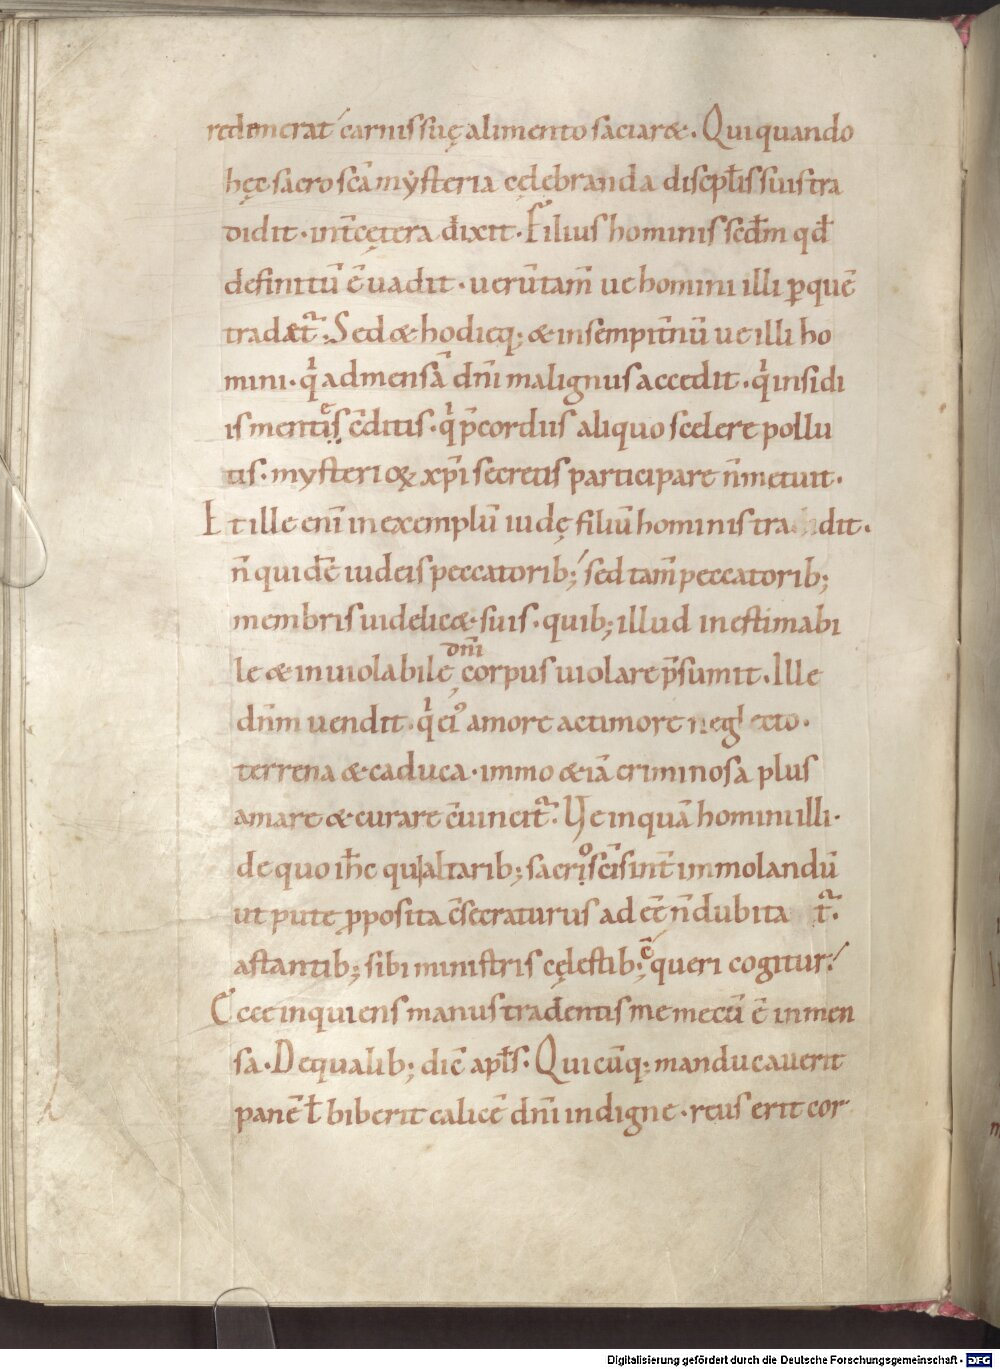 redemerat carnis suę alimento saciaret. Qui quando
hęc sacroscā mẏsteria cęlebranda discipl̄is suis tra
didit. int̄ cętera dixit. Filius hominis scdm̄ qđ
definitū ē uadit. uerūtam̄ uę homini illi ꝑ quē
tradet᷑. Sed & hodieq; & in sempit̄nū ue illi ho
mini. qi ad mensā dn̄i malignus accedit. qi insidi
is mentis c̄ditis. qi p̄cordiis aliquo scelere pollu
tis. mysterioꝝ xp̄i secretis participare n̄ metuit.
Et ille eni̅ in exemplū iudę filiū hominis tradidit.
n̄ quidē iudeis peccatorib; sed tam̄ peccatorib;
membris uidelic& suis. quib; illud inestimabi
le & inuiolabilę dn̄i corpus uiolare p̄sumit. Ille
dn̄m uendit. qi ei' amore ac timore neglecto.
terrena & caduca. immo & iā criminosa plus
amare & curare c̄uincit᷑. Ve inquā homini illi.
de quo ih̄c qui altarib; sacrosc̄is int̄ immolandū
ut pute ꝓposita c̄secraturus adēē n̄ dubitat᷑.
astantib; sibi ministris cęlestib; c̄queri cogitur.
Ecce inquiens manus tradentis me mecū ē in men
sa. De qualib; dic̄ apl̄s. Quicūq; manducauerit
panē ł biberit calicē dn̄i indigne. reus erit cor
Digitalisierung gefördert durch die Deutsche Forschungsgemeinschaft - DFG